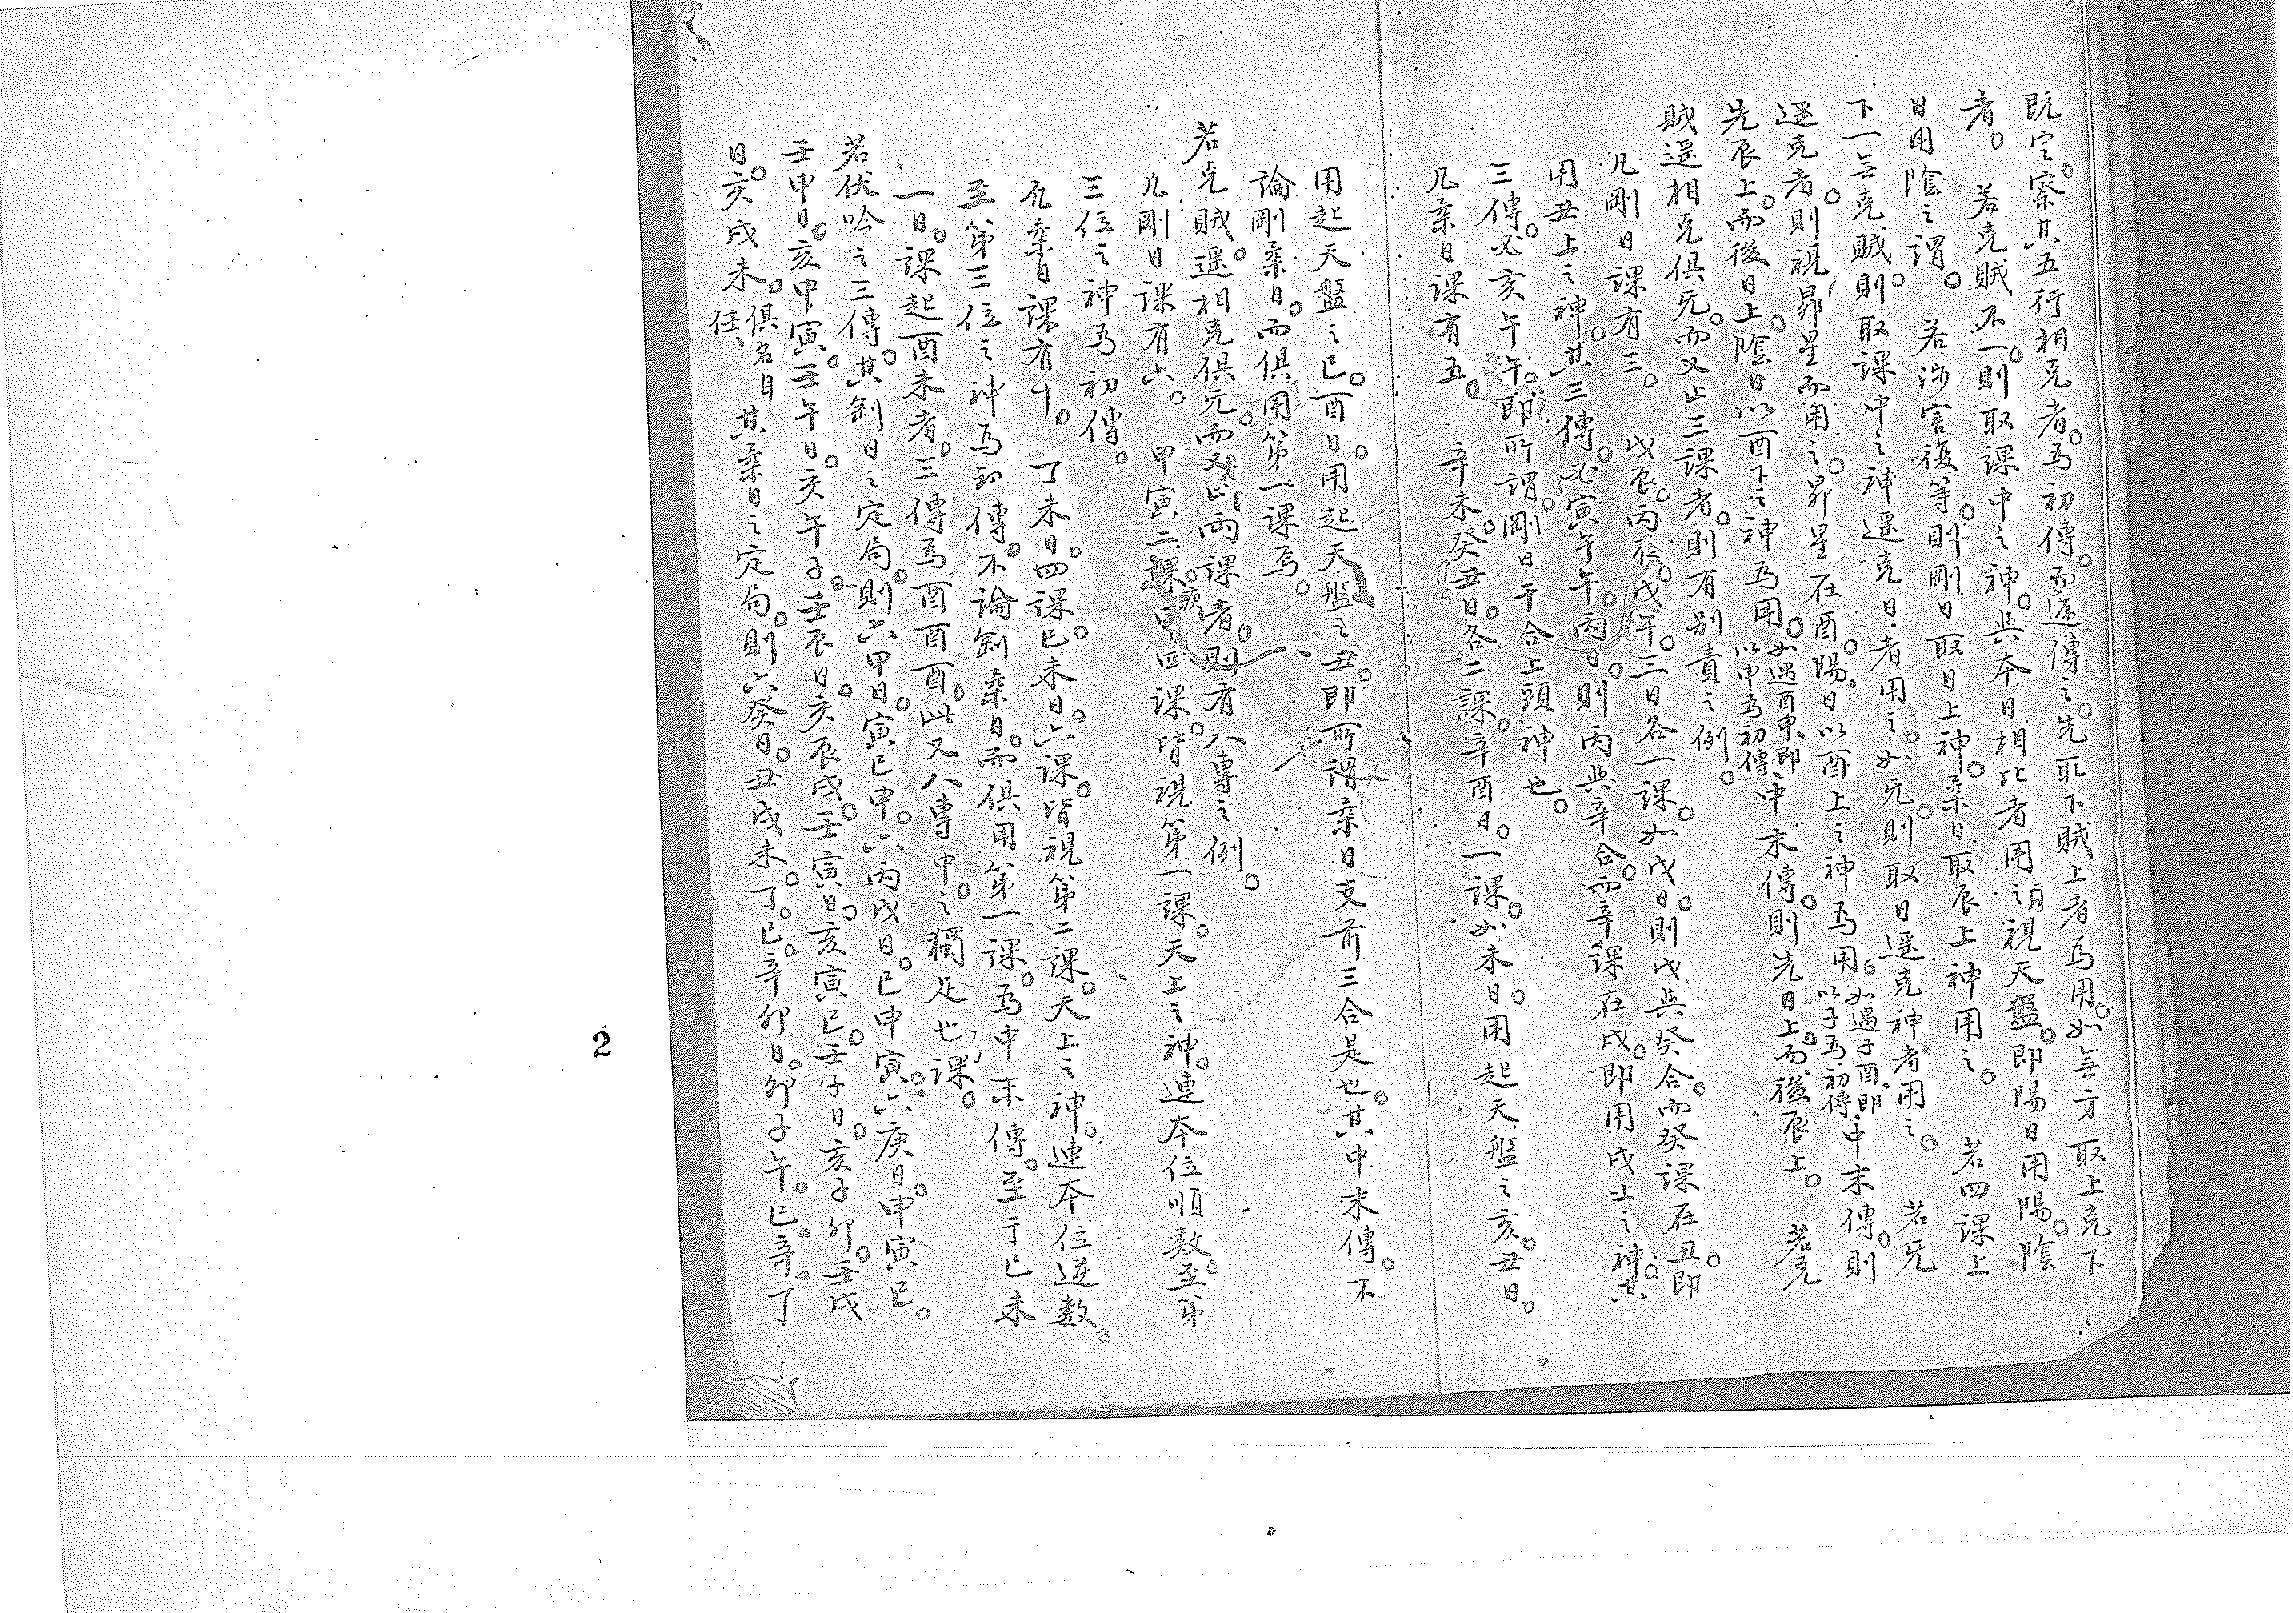 既定。察其五行相克者。為初傳。而遞傳之。先取下賊上者為用。如無方取上克下
者。若克賊不一。則取課中之神。與本日相比者用之。視天盤。即陽日用陽。陰
日用陰之謂。若涉害復等。則剛日取日上神。柔日取辰上神用之。若四課上
下一無克賊。則取課中之神遥克日者用之。如無。則取日遥克神者用之。若无
遥克者。則視昴星而用之。昴星在酉。陽日以酉上之神為用。如遇子酉。即以子為初傳中末傳。則
先辰上。而後日上。陰日以酉下之神為用。如遇酉東。即以申為初傳中末傳。則先日上。而後辰上。若克
賊遥相克俱无。而又止三課者。則有别責之例。
凡剛日課有三。戊辰。丙辰。戊午。三日各一課。如戊日。則戊與癸合。而癸課在丑。即
用丑上之神。其三傳。必寅午午。丙日。則丙與辛合。而辛課在戌。即用戌上之神。其
三傳。必亥午午。即所謂。剛日干合上頭神也。
凡柔日課有五。辛未。癸丑日。各二課。辛酉日。一課。如未日。用起天盤之亥。丑日。
用起天盤之巳。酉日。用起天盤之丑。即所謂柔日支前三合是也。其中末傳。不
論剛柔日。而俱用第一課焉。
若克賊。遥相克俱无。而又止兩課者。則有八專之例。
凡剛日課有六。甲寅二課。四課。皆視第一課。天上之神。連本位順數。至第
三位之神為初傳。
凡柔日課有十。丁未日。四課。己未日。六課。皆視第二課。天上之神。連本位逆數。
至第三位之神為初傳。不論剛柔日。而俱用第一課。為中末傳。至于己未
一日。課起酉未者。三傳為酉酉酉。此又八專中。之獨足也課。
若伏吟之三傳。其剛日之定局。則六甲日。寅巳申。六丙戊日。巳申寅。六庚日。申寅巳。
壬申日。亥申寅。壬午日。亥午子。壬辰日。亥辰戌。壬寅日。亥寅巳。壬子日。亥子卯。壬戌
日。亥戌未。俱名自任。其柔日之定局。則六癸日。丑戌未。丁。己。辛卯日。卯子午。己。辛。丁
2